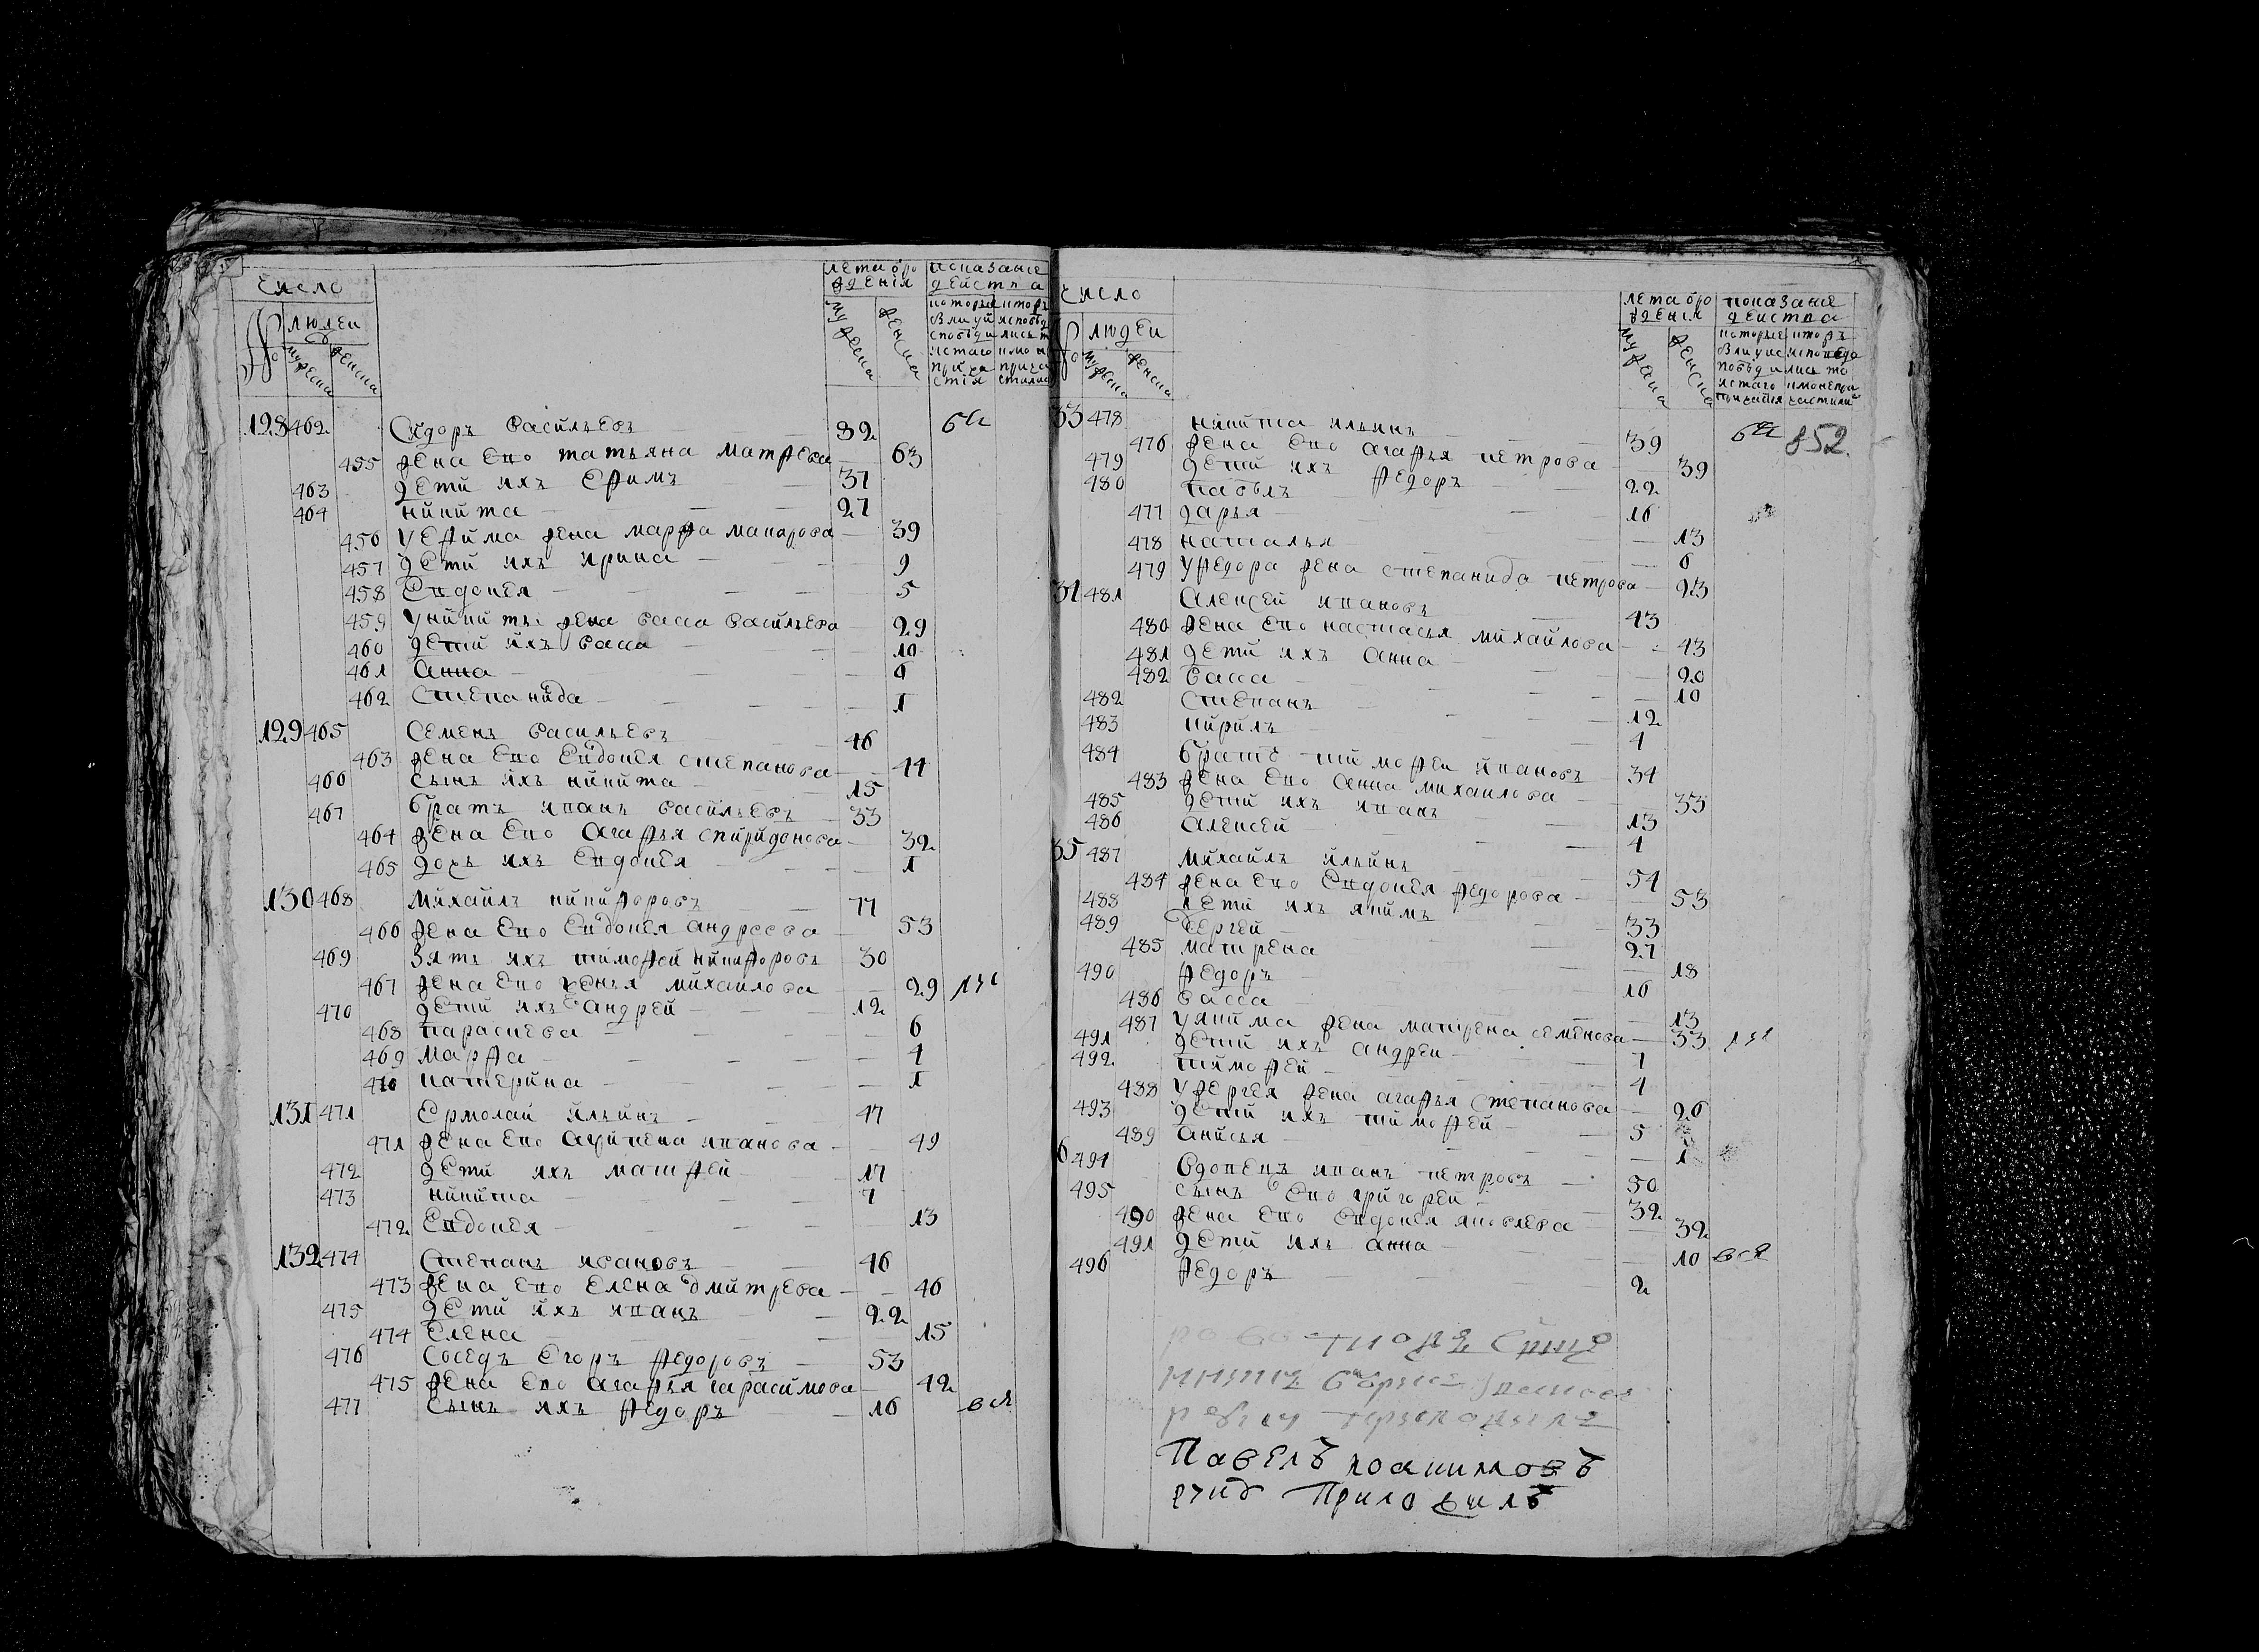 число
людей
мужеска
женска
лета оро
ждения
мужеска
женска
показание
действа
128 462 Сидоръ васильевъ 82 бы
455 жена ево татьяна матфева 63
463 дети ихъ ефимъ 37
464 никита 27
456 у ефима жена марфа макарова 39
457 дети ихъ ирина 9
458 Евдокея 5
459 у никиты жена васа васильева 29
460 дети ихъ васа 10
461 Анна 6
462 степанида 1
129 465 Семенъ васильевъ 46
463 жена ево Евдокея степанова 44
466 сынъ ихъ никита 15
467 братъ иванъ васильевъ 33
464 жена ево Агафья спиридонова 32
465 дочь ихъ Евдокея 1
130 468 михайлъ никифоровъ 77
466 жена ево Евдокея андреева 53
469 зять ихъ тимофей никифоровъ 30
467 жена ево михайлова 29
470 дети ихъ андрей 12
468 параскева 6
469 марфа 4
470 катерина 1
131 471 Ермолай ильинъ 47
471 жена ево акулина иванова 49
472 дети ихъ матфей 17
473 никита 7
472 Евдокея 13
132 474 Степанъ ивановъ 46
473 жена ево Елена дмитрева 46
475 дети ихъ иванъ 22
474 Елена 15
476 Соседъ Егоръ федоровъ 53
475 жена ево агафья гарасимова 42
477 сынъ ихъ федоръ 16 вся
число
людей
мужеска
женска
лета оро
ждения
мужеска
женска
показание
действа
33 478 никита ильинъ 39 бы 852
476 жена ево агафья петрова 39
479 дети ихъ федоръ 22
480 павелъ 16
477 дарья 13
478 наталья 6
479 у федора жена степанида петрова 23
34 481 Алексей ивановъ 43
480 жена ево настасья михайлова 43
481 дети ихъ анна 20
482 васа 10
482 степанъ 12
483 кирилъ 4
484 братъ тимофеи ивановъ 34
483 жена ево анна михаилова 33
485 дети ихъ иванъ 13
486 Алексей 4
35 487 михайлъ ильинъ 54
484 жена ево Евдокея федорова 53
488 дети ихъ якимъ 33
489 Сергей 27
485 матрена 18
490 федоръ 16
486 васса 13
487 у якима жена матрена семенова 33
491 дети ихъ андреи 7
492 тимофей 4
488 у сергея жена агафья степанова 26
493 дети ихъ тимофей 5
489 анисья 1
6 494 вдовецъ иванъ петровъ 50
495 сынъ ево григорей 32
490 жена ево Евдокея яковлева 32
491 дети ихъ анна 10 вся
496 федоръ 2
Павелъ иоакимовъ
руку Приложилъ